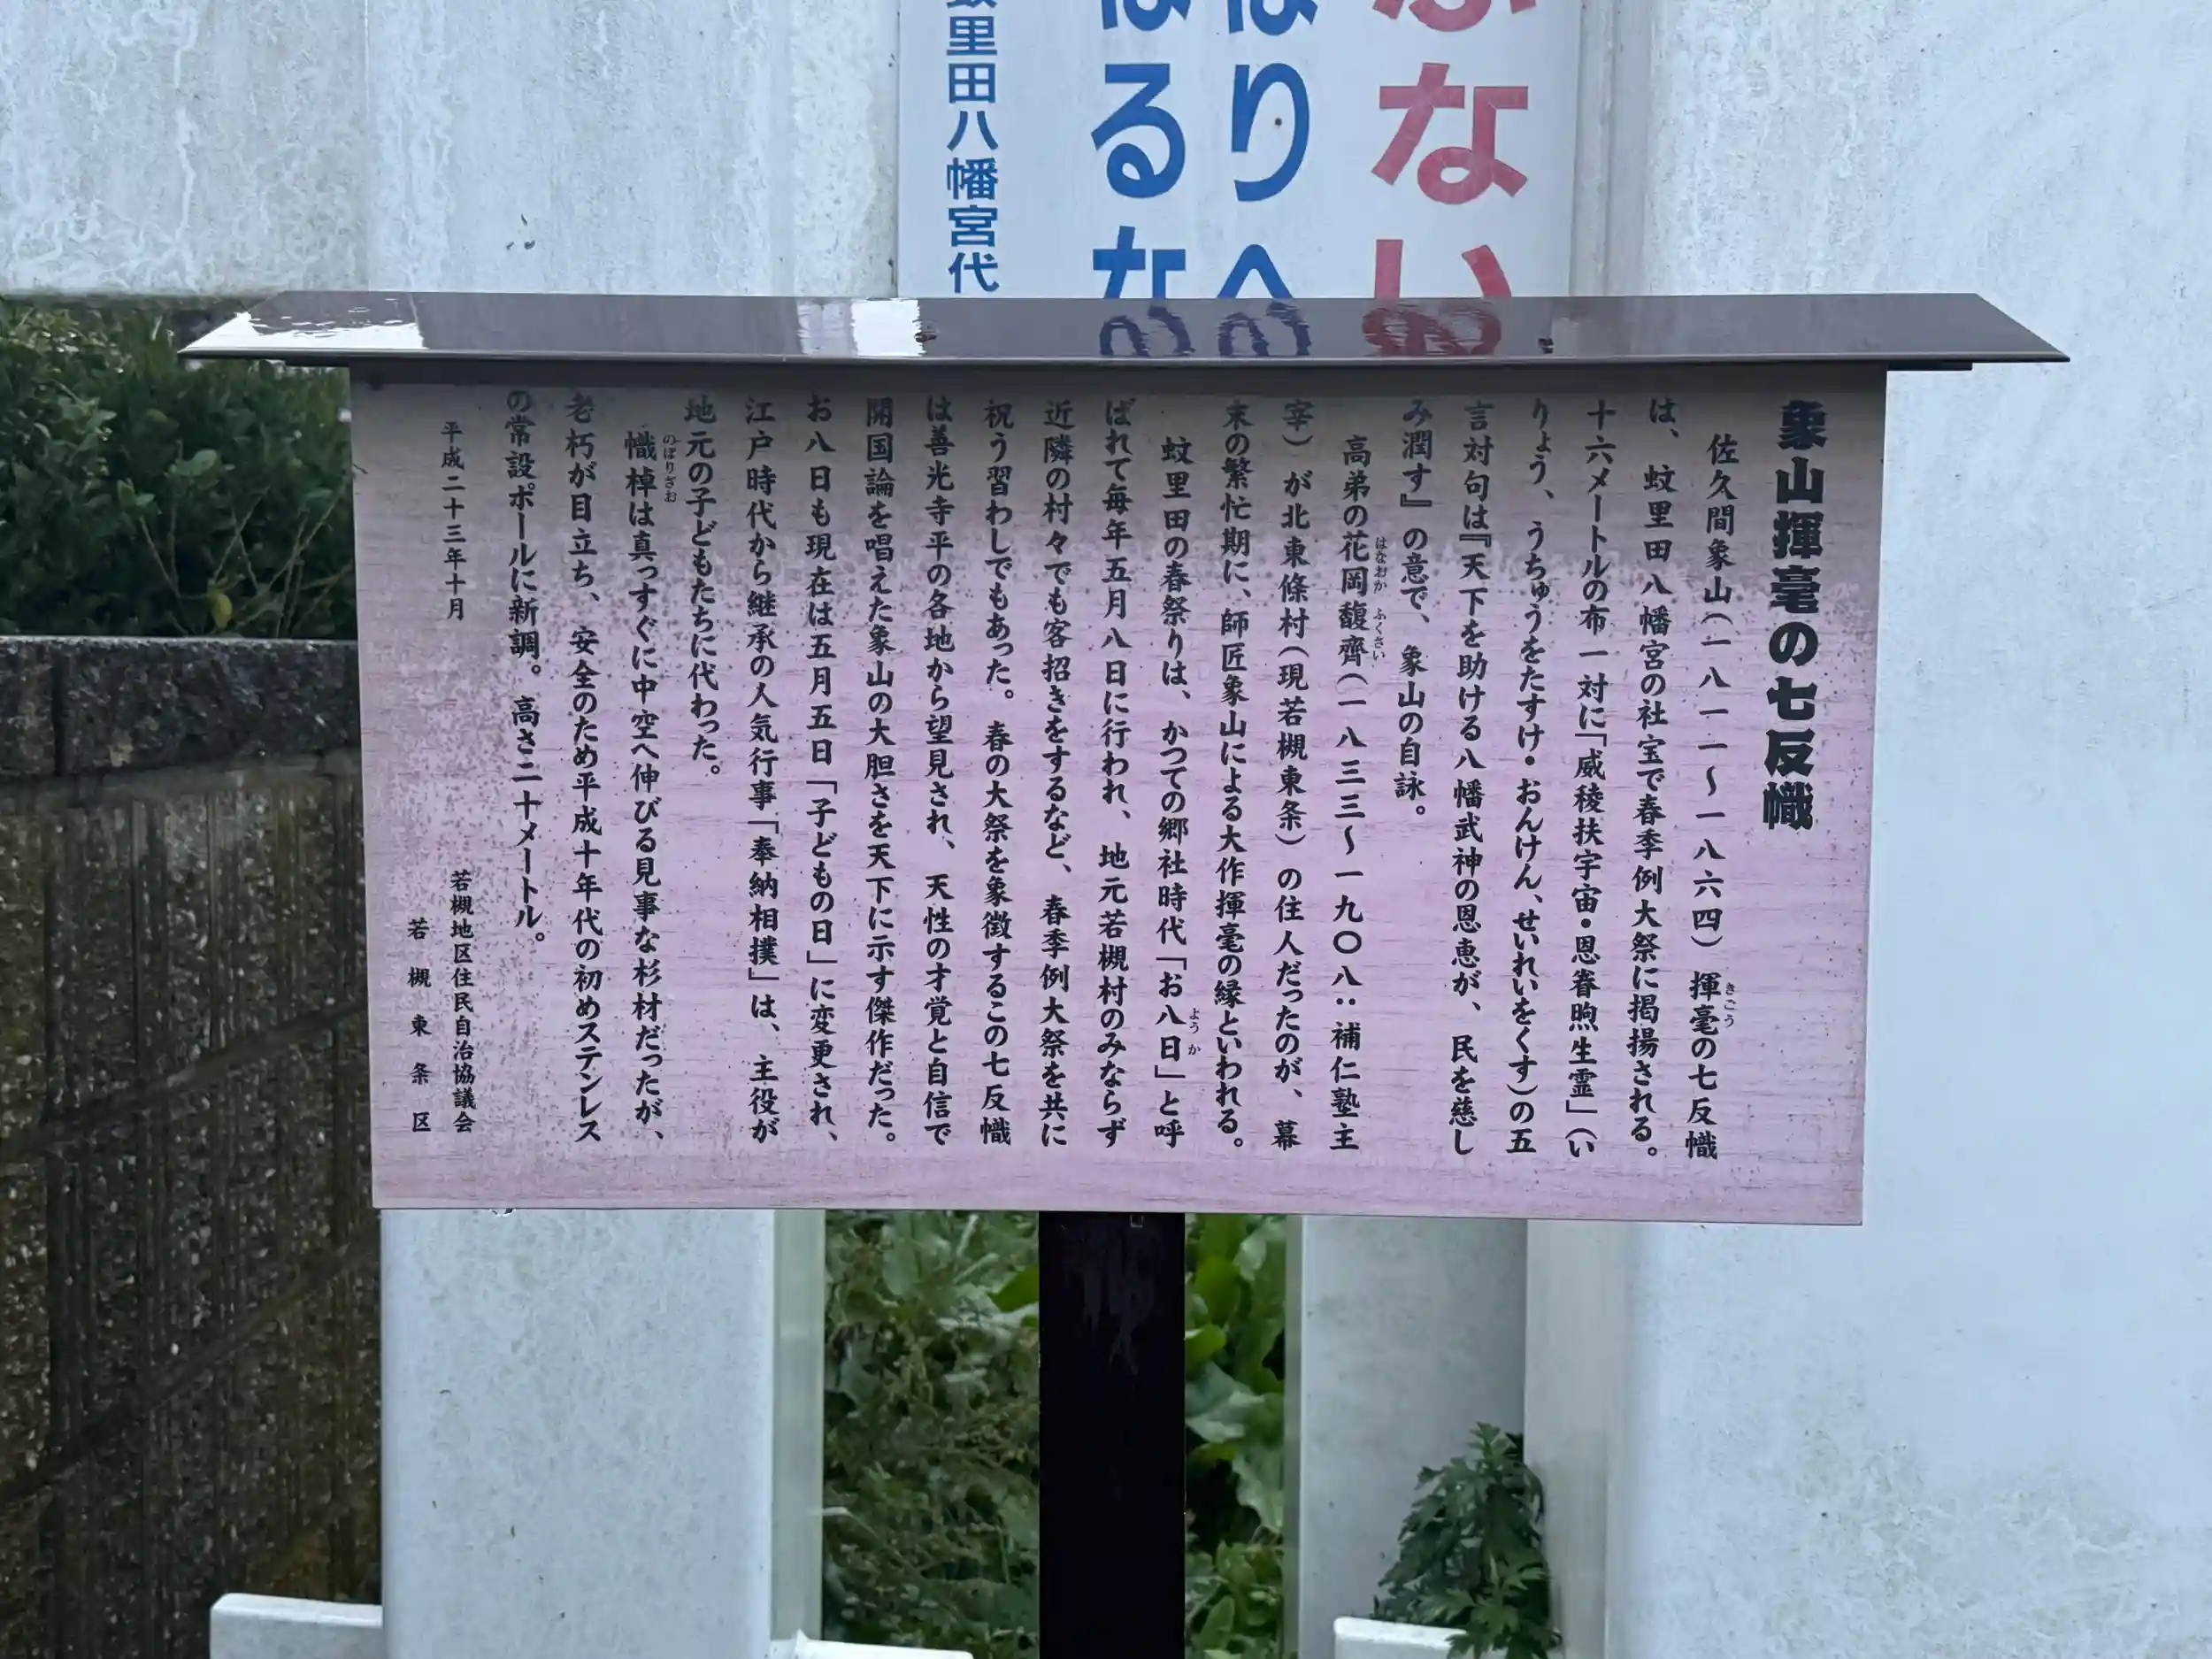 象山揮毫の七反幟
佐久間象山（一八一一〜一八六四）揮毫の七反幟
きごう
は、蚊里田八幡宮の社宝で春季例大祭に掲揚される。
十六メートルの布一対に「威稜扶宇宙・恩眷煦生霊」（い
りょう、うちゅうをたすけ・おんけん、せいれいをくす）の五
言対句は『天下を助ける八幡武神の恩恵が、民を慈し
み潤す』の意で、象山の自詠。
高弟の花岡馥齊（一八三三〜一九〇八：補仁塾主
はなおか ふくさい
宰）が北東條村（現若槻東条）の住人だったのが、幕
末の繁忙期に、師匠象山による大作揮毫の縁といわれる。
蚊里田の春祭りは、かつての郷社時代「お八日」と呼
ようか
ばれて毎年五月八日に行われ、地元若槻村のみならず
近隣の村々でも客招きをするなど、春季例大祭を共に
祝う習わしでもあった。春の大祭を象徴するこの七反幟
は善光寺平の各地から望見され、天性の才覚と自信で
開国論を唱えた象山の大胆さを天下に示す傑作だった。
お八日も現在は五月五日「子どもの日」に変更され、
江戸時代から継承の人気行事「奉納相撲」は、主役が
地元の子どもたちに代わった。
幟棹は真っすぐに中空へ伸びる見事な杉材だったが、
のぼりざお
老朽が目立ち、安全のため平成十年代の初めステンレス
の常設ポールに新調。高さ二十メートル。
平成二十三年十月
若槻地区住民自治協議会
若槻東条区
ない
りへ
るな
里田八幡宮代